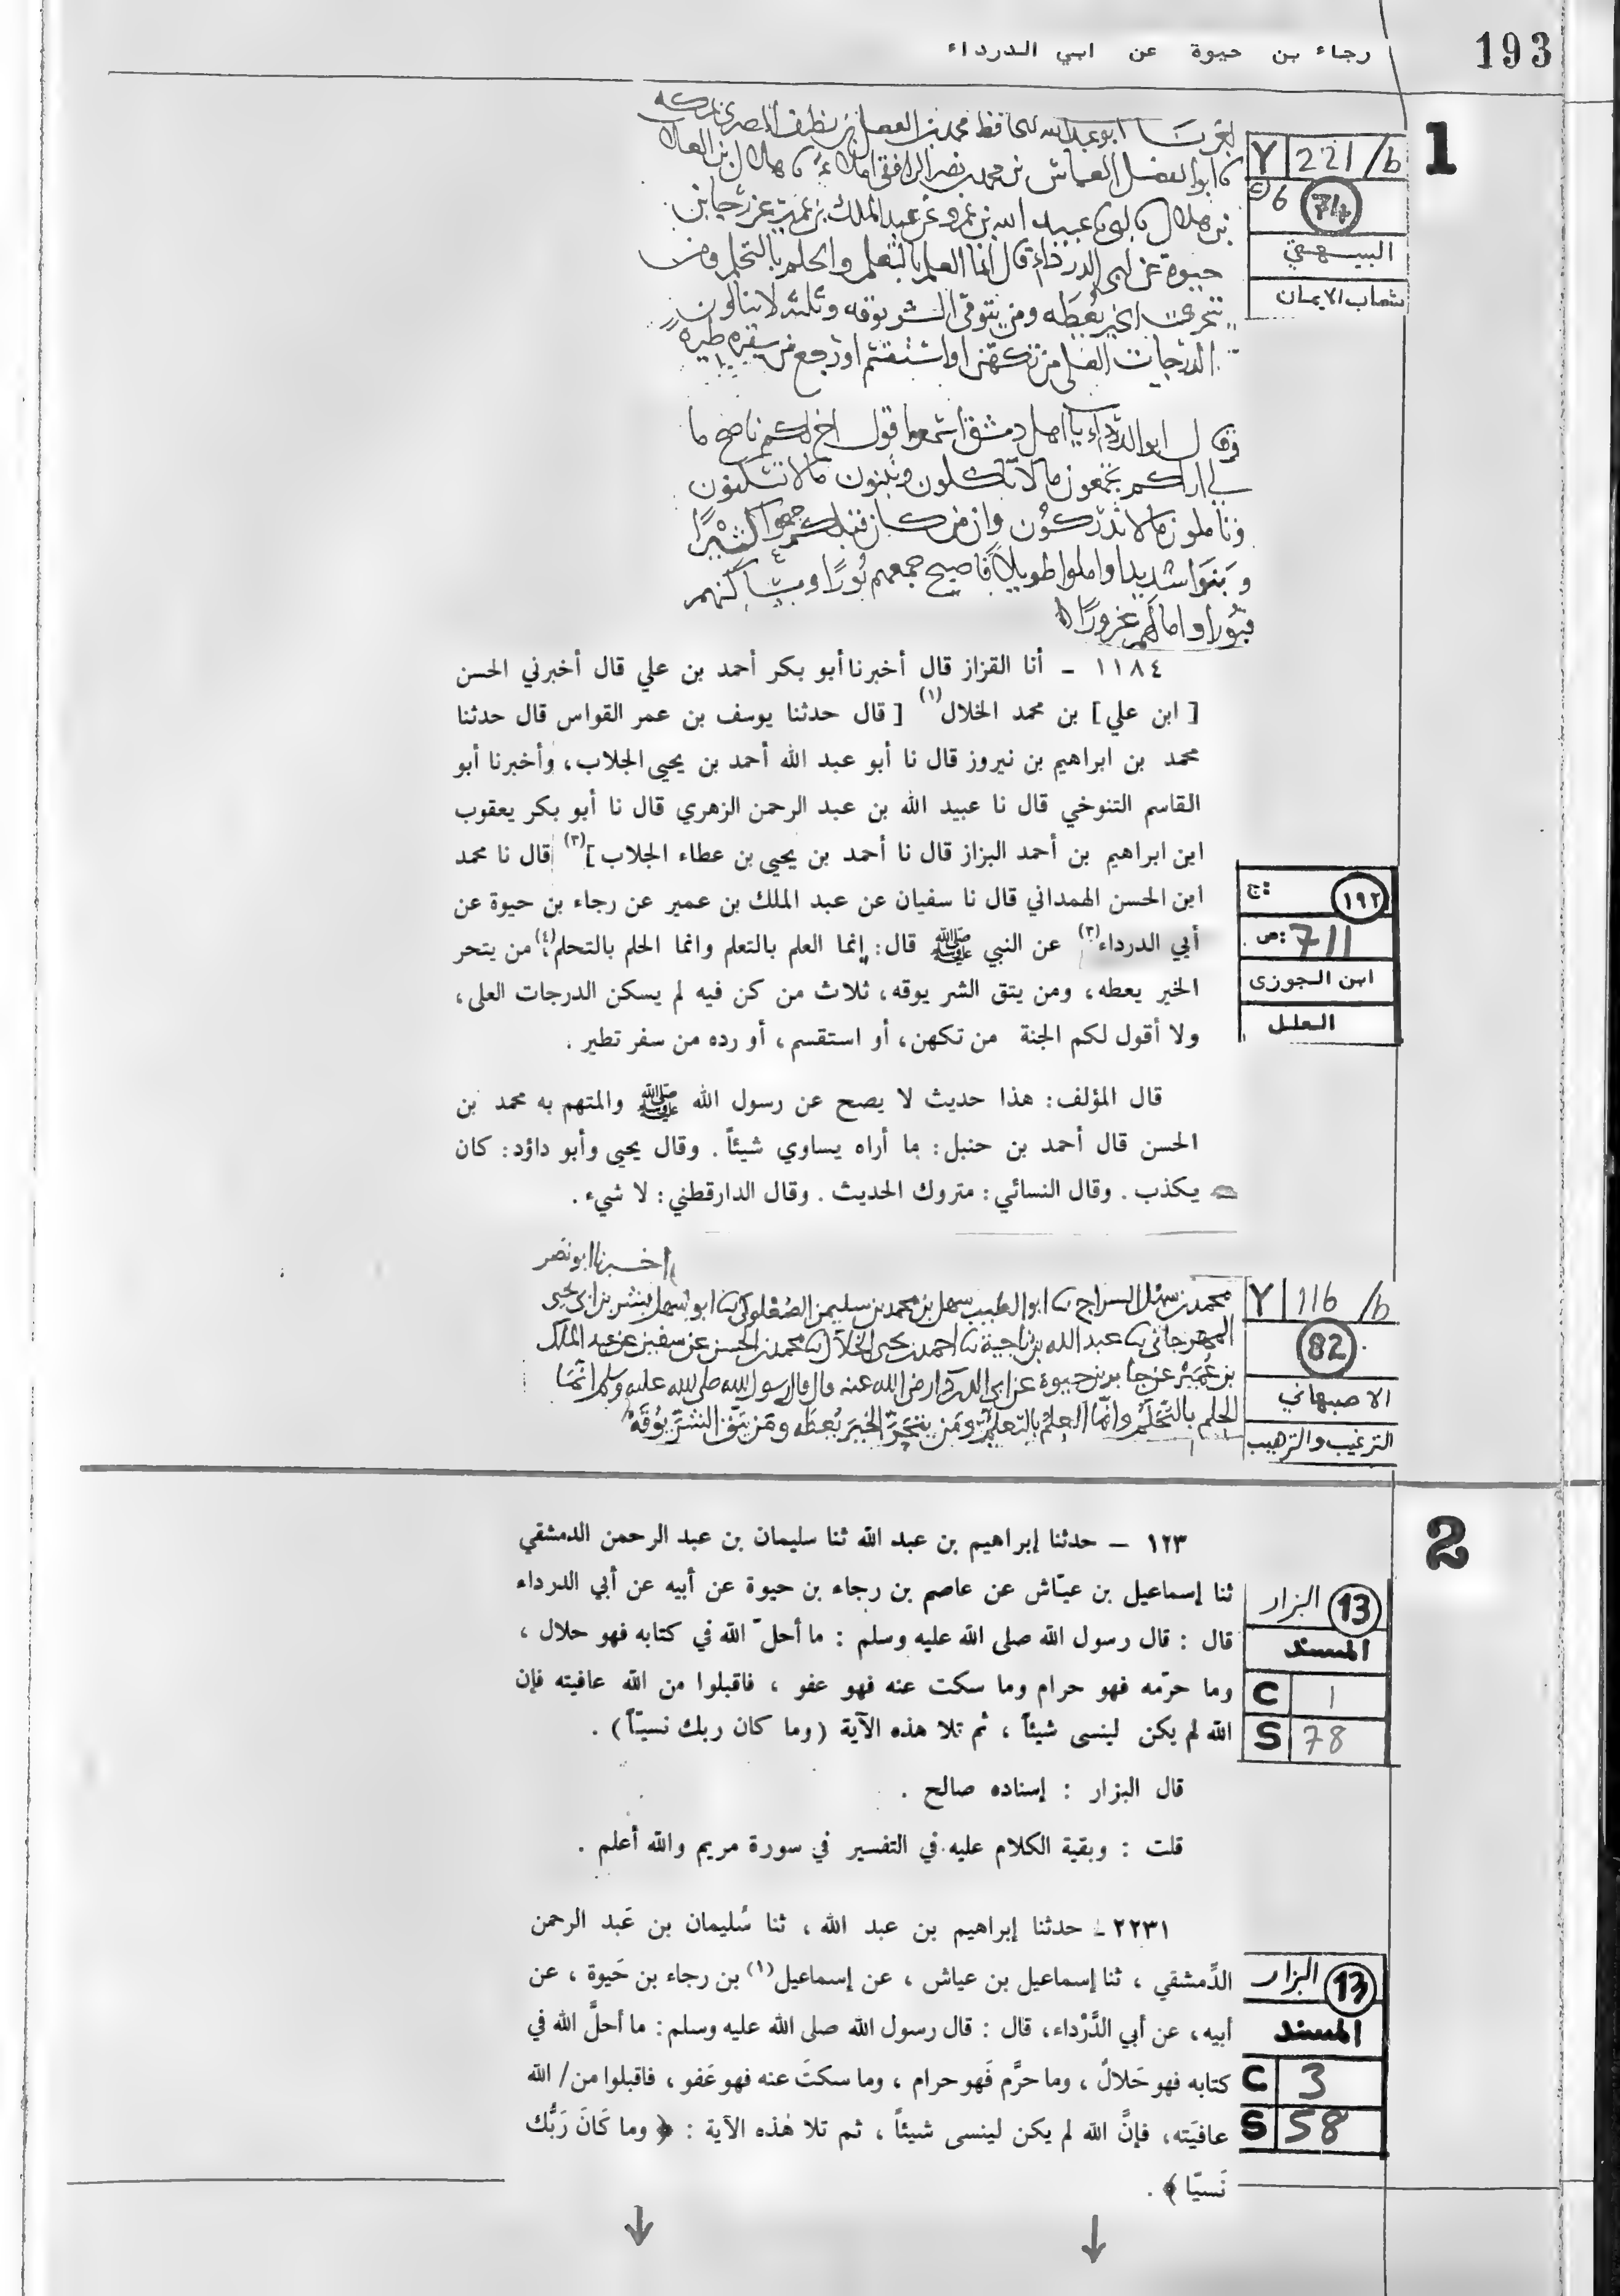 193
رجاء بن حيوة عن ابي الدرداء
1
Y 221/b
ج 6 74
البيهقي
شعاب الايمان
ابو عبد الله الحافظ محمد بن الفضل بن نظيف المصري بمكة
ابو الفضل العباس بن محمد بن نصر الرافقي املاء هلال بن العلاء
بن هلال عبيد الله بن عمرو عن عبد الملك بن عمير عن رجا بن
حيوة عن ابي الدرداء قال انما العلم بالتعلم والحلم بالتحلم ومن
يتحر الخير يعطه ومن يتوقى الشر يوقه وثلثه لا ينالون
الدرجات العلى من تكهن او استقسم او رجع من سفره طيرة
وقال ابو الدرداء يا اهل دمشق اسمعوا قول اخ لكم ناصح ما
لي اراكم تجمعون ما لا تاكلون وتبنون ما لا تسكنون
وتاملون ما لا تدركون وان من كان قبلكم جمعوا كثيرًا
وبنوا شديدا واملوا طويلا فاصبح جمعهم بُورًا ومساكنهم
قبُورا وامالهم غرورًا
١١٨٤ - أنا القزاز قال أخبرنا أبو بكر أحمد بن علي قال أخبرني الحسن
[ ابن علي] بن محمد الخلال(١) [ قال حدثنا يوسف بن عمر القواس قال حدثنا
محمد بن ابراهيم بن نيروز قال نا أبو عبد الله أحمد بن يحيى الجلاب، وأخبرنا أبو
القاسم التنوخي قال نا عبيد الله بن عبد الرحمن الزهري قال نا أبو بكر يعقوب
ابن ابراهيم بن أحمد البزاز قال نا أحمد بن يحيى بن عطاء الجلاب](٢) قال نا محمد
ابن الحسن الهمداني قال نا سفيان عن عبد الملك بن عمير عن رجاء بن حيوة عن
أبي الدرداء(٣) عن النبي ﷺ قال: إنما العلم بالتعلم وانما الحلم بالتحلم(٤)؛ من يتحر
الخير يعطه، ومن يتق الشر يوقه، ثلاث من كن فيه لم يسكن الدرجات العلى،
ولا أقول لكم الجنة من تكهن، أو استقسم، أو رده من سفر تطير .
ج: ١٩٢
ص: 711
ابن الجوزى
العلل
قال المؤلف: هذا حديث لا يصح عن رسول الله ﷺ والمتهم به محمد بن
الحسن قال أحمد بن حنبل: ما أراه يساوي شيئاً. وقال يحيى وأبو داؤد: كان
يكذب. وقال النسائي: متروك الحديث. وقال الدارقطني: لا شيء.
اخبرنا ابو نصر
محمد بن سهل السراج ثنا ابو الطيب سهل بن محمد بن سليمن الصعلوكي ثنا ابو سهل بشر بن ابي يحيى
المهرجاني ثنا عبد الله بن ناجية ثنا احمد بن يحيى الخلال ثنا محمد بن الحسن عن سفين عن عبد الملك
بن عُمَيْر عن حيوة عن ابي الدرداء رضي الله عنه قال قال رسول الله صلى الله عليه وسلم انما
الحلم بالتحلم وانما العلم بالتعلم ومن يتحر الخير يعطه ومن يتق الشر يوقه
Y 116/b
82
الاصبهاني
الترغيب والترهيب
2
١٢٣ – حدثنا إبراهيم بن عبد الله ثنا سليمان بن عبد الرحمن الدمشقي
ثنا إسماعيل بن عيّاش عن عاصم بن رجاء بن حيوة عن أبيه عن أبي الدرداء
قال : قال رسول الله صلى الله عليه وسلم : ما أحلّ الله في كتابه فهو حلال ،
وما حرّمه فهو حرام وما سكت عنه فهو عفو ، فاقبلوا من الله عافيته فإن
الله لم يكن لينسى شيئاً ، ثم تلا هذه الآية (وما كان ربك نسيّاً) .
13 البزار
المسند
C 1
S 78
قال البزار : إسناده صالح .
قلت : وبقية الكلام عليه في التفسير في سورة مريم والله أعلم .
٢٢٣١ - حدثنا إبراهيم بن عبد الله ، ثنا سُليمان بن عَبد الرحمن
الدِّمشقي ، ثنا إسماعيل بن عياش ، عن إسماعيل(١) بن رجاء بن حَيوة ، عن
أبيه، عن أبي الدَّرْداء، قال : قال رسول الله صلى الله عليه وسلم: ما أحلَّ الله في
كتابه فهو حَلالٌ ، وما حرَّم فَهو حرام ، وما سكتَ عنه فهو عَفو ، فاقبلوا من/ الله
عافيَته، فإنَّ الله لم يكن لينسى شيئاً ، ثم تلا هٰذه الآية : ﴿ وما كَانَ رَبُّك
نَسيّا ﴾ .
13 البزار
المسند
C 3
S 58